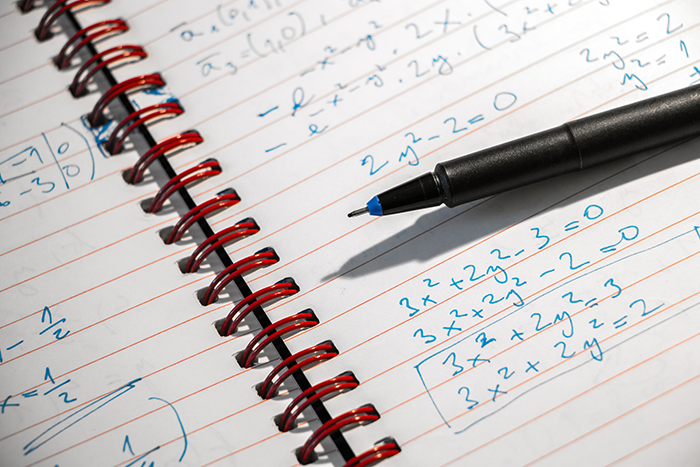 a₁(0,1),
a₃=(1,0)
- e -x²-y² . 2x . (3x²+
- e -x²-y² . 2y . (
2y² = 2
y² = 1
2y² - 2 = 0
3x² + 2y² - 3 = 0
3x² + 2y² - 2 = 0
3x² + 2y² = 3
3x² + 2y² = 2
-1 0
-3 0
- 1/2
x = 1/2
1/2